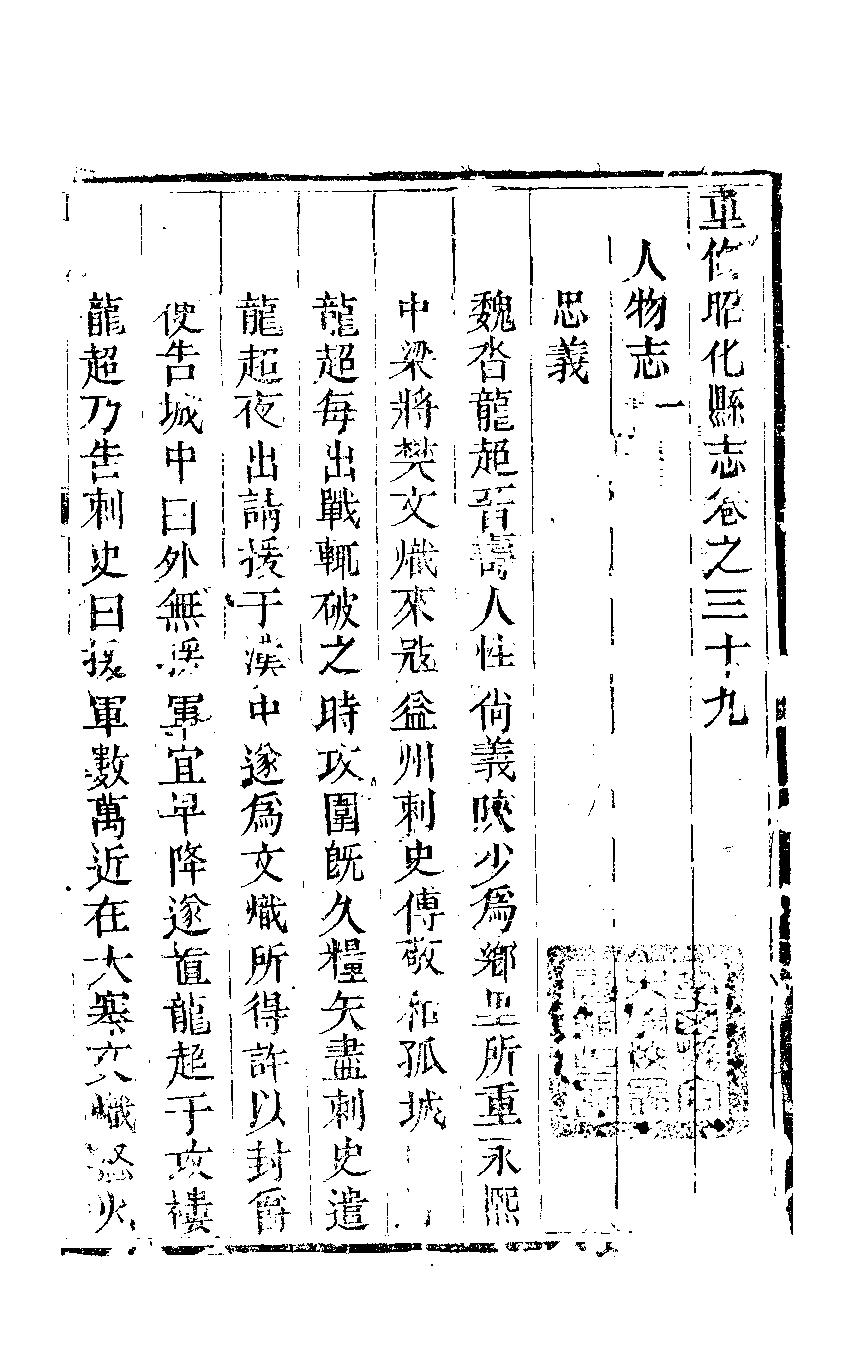 重修昭化縣志卷之三十九
人物志一
忠義
魏沓龍超晉壽人性尙義陝少爲鄉里所重永熙
中梁將樊文熾來㓂益州刺史傅敬和孤城
龍超每出戰輒破之時攻圍旣久糧矢盡刺史遣
龍超夜出請援于漢中遂爲文熾所得許以封爵
使告城中曰外無援軍宜早降遂置龍超于攻樓
龍超乃告刺史曰援軍數萬近在大寒文熾怒火